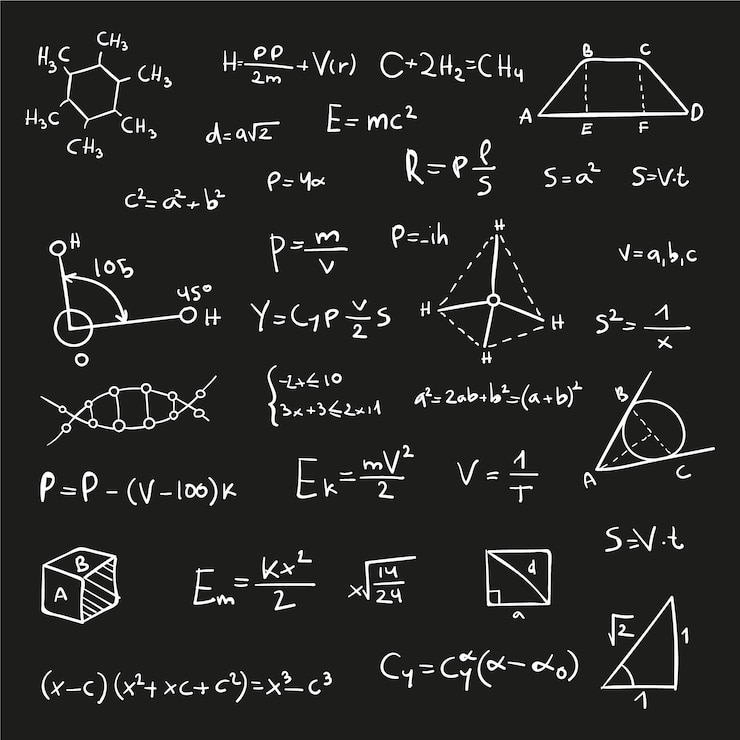 H₃C
CH₃
CH₃
H₃C
CH₃
CH₃
H=pp/2m+V(r)
C+2H₂=CH₄
B C
A D
E F
d=a√2
E=mc²
R=ρ ℓ/S
S=a²
S=V·t
c²=a²+b²
P=4α
H
105
45°
H
O
P=m/v
P=-ih
H
H
H
H
V=a,b,c
Y=C₇P v/2 S
S²=1/x
-2x≤10
3x+3≤2x+1
a²=2ab+b²=(a+b)²
B
A
C
P=P-(V-100)K
Eₖ=mV²/2
V=1/T
S=V·t
B
A
Eₘ=Kx²/2
x√14/24
d
a
√2
1
1
(x-c)(x²+xc+c²)=x³-c³
Cᵧ=Cᵧᵅ(α-α₀)